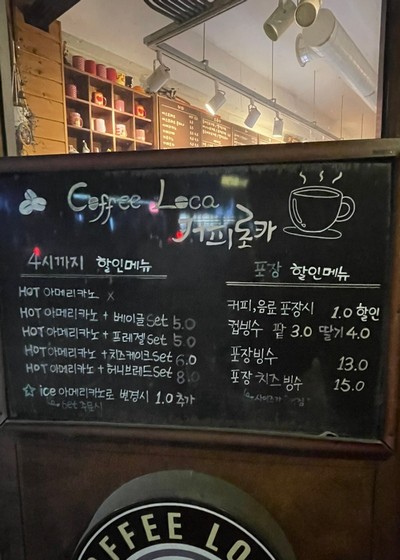 Coffee Loca
커피로카
4시까지 할인메뉴
HOT 아메리카노 x
HOT 아메리카노 + 베이글 Set 5.0
HOT 아메리카노 + 프레젤 Set 5.0
HOT 아메리카노 + 치즈케이크 Set 6.0
HOT 아메리카노 + 허니브레드 Set 8.0
☆ ice 아메리카노로 변경시 1.0 추가
set 주문시
포장 할인메뉴
커피,음료 포장시 1.0 할인
컵빙수 팥 3.0 딸기 4.0
포장빙수 13.0
포장 치즈빙수 15.0
OFFEE LO